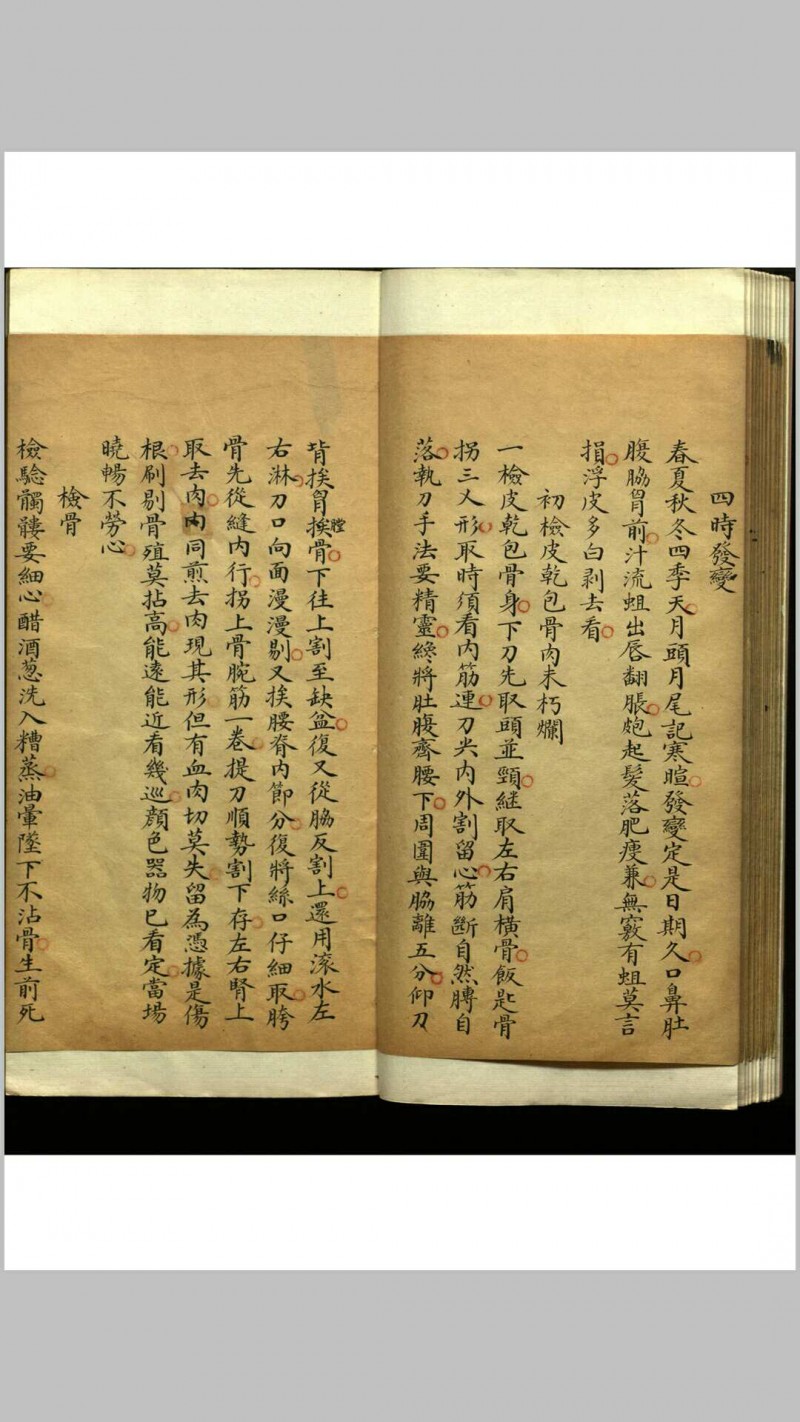 四時發變
春夏秋冬四季天月頭月尾記寒暄發變定是日期久口鼻肚
腹脇胷前汁流蛆出唇翻脹皰起髮落肥瘦兼無竅有蛆莫言
損浮皮多白剥去看
初檢皮乾包骨肉未朽爛
一檢皮乾包骨身下刀先取頭並頸継取左右肩橫骨飯匙骨
拐三乂形取時須看內筋連刀尖內外割留心筋斷自然膊自
落執刀手法要精靈纔將肚腹齊腰下周圍與脇離五分仰刀
背挨胷膛挨骨下往上割至缺盆復又從脇反割上還用滚水左
右淋刀口向面漫漫剔又挨腰脊內節分復將絲口仔細取胯
骨先從縫內行拐上骨腕筋一巻提刀順勢割下存左右腎上
取去肉肉同煎去肉現其形但有血肉切莫失留為憑據是傷
根刷剔骨殖莫拈高能逺能近看幾巡顔色器物已看定當場
曉暢不勞心
檢骨
檢驗髑髏要細心醋酒葱洗入糟蒸油暈墜下不沾骨生前死